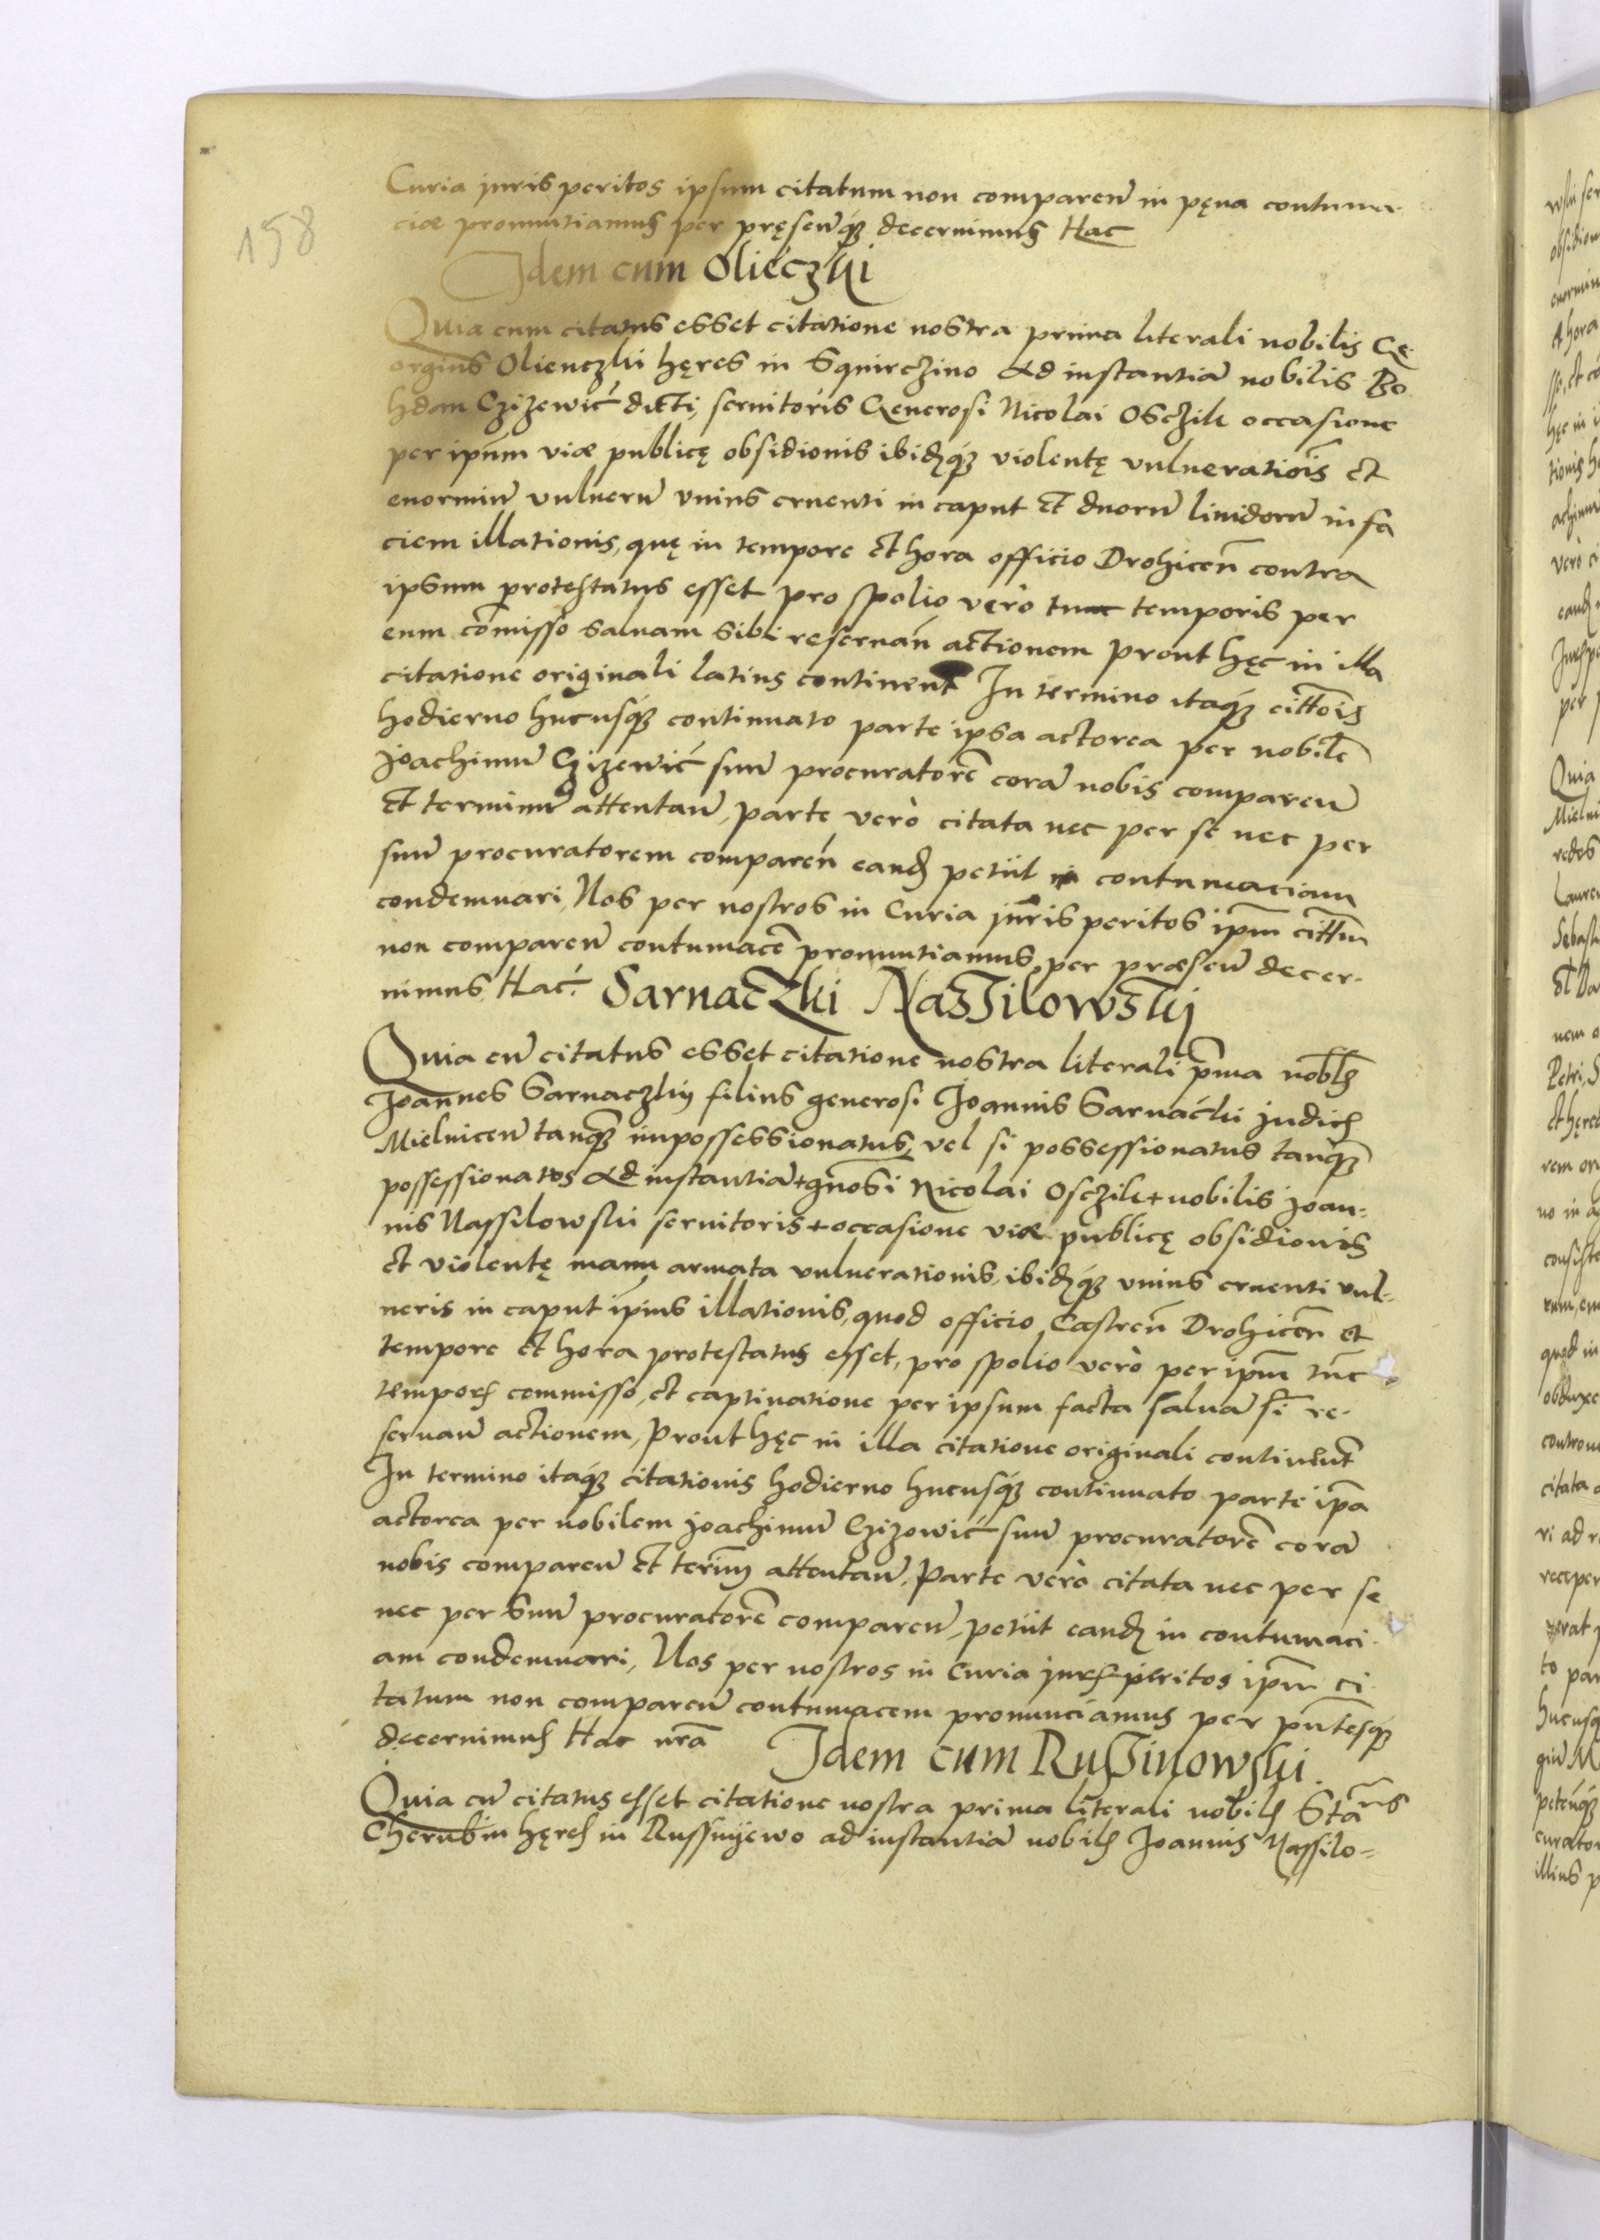 158
Curia juris peritos ipsum citatum non comparen̄ in pęna contuma-
ciæ pronuntiamus per pręsen̄q(ue) decernimus Hac
Idem cum Olieczki
Quia cum citatus esset citatione nostra prima literali nobilis Ge-
orgius Olienczki hęres in Squirczino ad instantiā nobilis Bo
hdan Czizewić dicti, seruitoris Generosi Nicolai Osczik occasione
per ipsum viæ publicę obsidionis ibidq(ue) violentę vulneratiōis et
enormiū vulnerū vnius cruenti in caput et duorū liuidorū in fa
ciem illationis, quę in tempore et hora officio Drohicen̄ contra
ipsum protestatus esset pro spolio verò tunc temporis per
eum cōmisso saluam sibi reseruan̄ actionem prout hęc in illa
citatione originali latius continent In termino itaq(ue) cittōis
hodierno hucusq(ue) continuato parte ipsa actorea per nobilē
Joachimū Czizewić suū procuratorē corā nobis comparen̄
et terminū attentan̄, parte verò citata nec per se nec per
suū procuratorem comparen̄ eand petiit in contumaciam
condemnari, Nos per nostros in Curia juris peritos ipm̄ cittm̄
non comparen̄ contumacē pronuntiamus per præsen̄ decer-
nimus Hac. Sarnaczki Nassilowski
Quia cū citatus esset citatione nostra literali pm̄a nobl̄s
Joannes Sarnaczkij filius generosi Joannis Sarnacki judicis
Mielnicen̄ tanq(uam) impossessionatus, vel si possessionatus tanq(uam)
possessionatos ad instantiā + gnosi Nicolai Osczik + nobilis Joan-
nis Nassilowski seruitoris + occasione viæ publicę obsidionis
et violentę manu armata vulnerationis, ibidq(ue) vnius cruenti vul-
neris in caput ip̄ius illationis, quod officio Castren̄ Drohicen̄ et
tempore et hora protestatus esset, pro spolio verò per ipm̄ tūc
temporis commisso, et captiuatione per ipsum facta saluā si re-
seruan̄ actionem, prout hęc in illa citatione originali continent
In termino itaq(ue) citationis hodierno hucusq(ue) continuato parte ip̄a
actorea per nobilem Joachimū Czizowić suū procuratorē corā
nobis comparen̄ et termin̄ attentan̄, Parte verò citata nec per se
nec per suū procuratorē comparen̄, petiit eand in contumaci-
am condemnari, Nos per nostros in Curia juris peritos ipm̄ ci-
tatum non comparen̄ contumacem pronunciamus per pn̄tesq(ue)
decernimus Hac nr̄a Idem cum Russinowski
Quia cū citatus esset citatione nostra prima literali nobilis Stāus
Cherubin hęres in Russinjewo ad instantiā nobilis Joannis Nassilo-